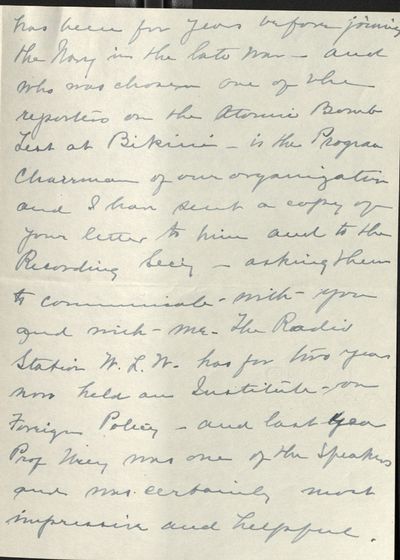 has been for years before joining
the Navy in the late war - and
who was chosen one of the
reporters on the Atomic Bomb
Test at Bikini - is the Program
Chairman of our organization
and I have sent a copy of
your letter to him and to the
Recording Sec'y - asking them
to communicate - with - you
and with - me - The Radio
Station W. L. W. has for two years
now held an Institute - on
Foreign Policy - and last year
Prof was one of the Speakers
and was certainly most
impressive and helpful.